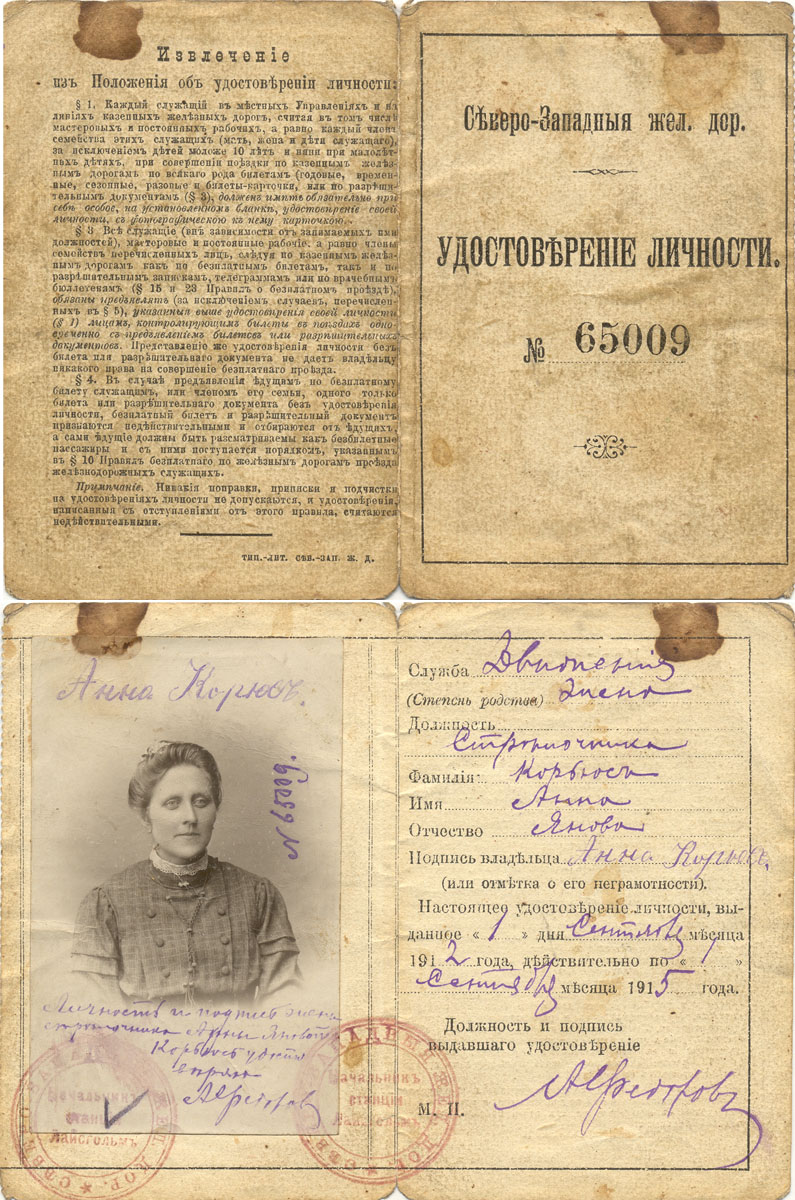 Извлеченіе
изъ Положенія объ удостовѣреніи личности:
§ 1. Каждый служащій въ мѣстныхъ Управленіяхъ и на
линіяхъ казенныхъ желѣзныхъ дорогъ, считая въ томъ числѣ
мастеровыхъ и постоянныхъ рабочихъ, а равно каждый членъ
семейства этихъ служащихъ (мать, жена и дѣти служащаго),
за исключеніемъ дѣтей моложе 10 лѣтъ и няни при малолѣт-
ныхъ дѣтяхъ, при совершеніи поѣздки по казеннымъ желѣз-
нымъ дорогамъ по всякаго рода билетамъ (годовые, времен-
ные, сезонные, разовые и билеты-карточки, или по разрѣши-
тельнымъ документамъ (§ 3), долженъ имѣть обязательно при
себѣ особое, на установленномъ бланкѣ, удостовѣреніе своей
личности, съ фотографическою къ нему карточкою.
§ 3 Всѣ служащіе (внѣ зависимости отъ занимаемыхъ ими
должностей), мастеровые и постоянные рабочіе, а равно члены
семействъ перечисленныхъ лицъ, слѣдуя по казеннымъ желѣз-
нымъ дорогамъ какъ по безплатнымъ билетамъ, такъ и по
разрѣшительнымъ запискамъ, телеграммамъ или по врачебнымъ
бюллетенямъ (§ 15 и 23 Правилъ о безплатномъ проѣздѣ),
обязаны предъявлять (за исключеніемъ случаевъ, перечислен-
ныхъ въ § 5), указанныя выше удостовѣренія своей личности
(§ 1) лицамъ, контролирующимъ билеты въ поѣздахъ одно-
временно съ предъявленіемъ билетовъ или разрѣшительныхъ
документовъ. Представленіе же удостовѣренія личности безъ
билета или разрѣшительнаго документа не даетъ владѣльцу
никакого права на совершеніе безплатнаго проѣзда.
§ 4. Въ случаѣ предъявленія ѣдущимъ по безплатному
билету служащимъ, или членомъ его семьи, одного только
билета или разрѣшительнаго документа безъ удостовѣренія
личности, безплатный билетъ и разрѣшительный документъ
признаются недѣйствительными и отбираются отъ ѣдущихъ,
а сами ѣдущіе должны быть разсматриваемы какъ безбилетные
пассажиры и съ ними поступается порядкомъ, указаннымъ
въ § 10 Правилъ безплатнаго по желѣзнымъ дорогамъ проѣзда
железнодорожныхъ служащихъ.
Примѣчаніе. Никакія поправки, приписки и подчистки
на удостовѣреніяхъ личности не допускаются, и удостовѣренія,
написанныя съ отступленіями отъ этого правила, считаются
недѣйствительными.
ТИП.-ЛИТ. СѢВ.-ЗАП. Ж. Д.
Сѣверо-Западныя жел. дор.
УДОСТОВѢРЕНІЕ ЛИЧНОСТИ.
№ 65009
Анна Корюсъ.
N 65009.
Личность и подпись жены
стрѣлочника Анны Яновой
Корбюсъ
АФедоровъ
Начальникъ
станціи
Лайсгольмъ
Служба Движенія
(Степень родства) жена
Должность
Стрѣлочника
Фамилія: Корбюсъ
Имя Анна
Отчество Янова
Подпись владѣльца Анна Корюсъ.
(или отмѣтка о его неграмотности).
Настоящее удостовѣреніе личности, вы-
данное «1» дня Сентября мѣсяца
1912 года, дѣйствительно по «1»
Сентября мѣсяца 1915 года.
Должность и подпись
выдавшаго удостовѣреніе
М. П. АФедоровъ
Начальникъ
станціи
Лайсгольмъ